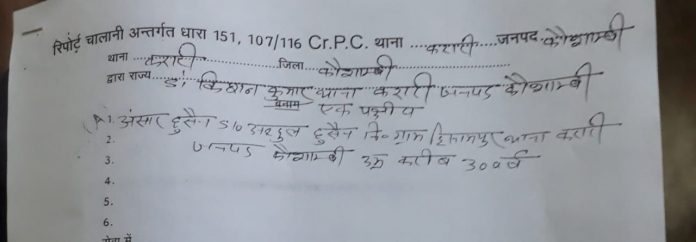 रिपोर्ट चालानी अन्तर्गत धारा 151, 107/116 Cr.P.C. थाना ....करारी....जनपद.कौशाम्बी
थाना ....करारी.... जिला ....कौशाम्बी....
द्वारा राज्य.... कुमार थाना करारी जनपद कौशाम्बी
बनाम एक पक्षीय
1. अंसार हुसैन S/o हुसैन नि० ग्राम थाना करारी
2. जनपद कौशाम्बी उम्र करीब 30 वर्ष
3.
4.
5.
6.